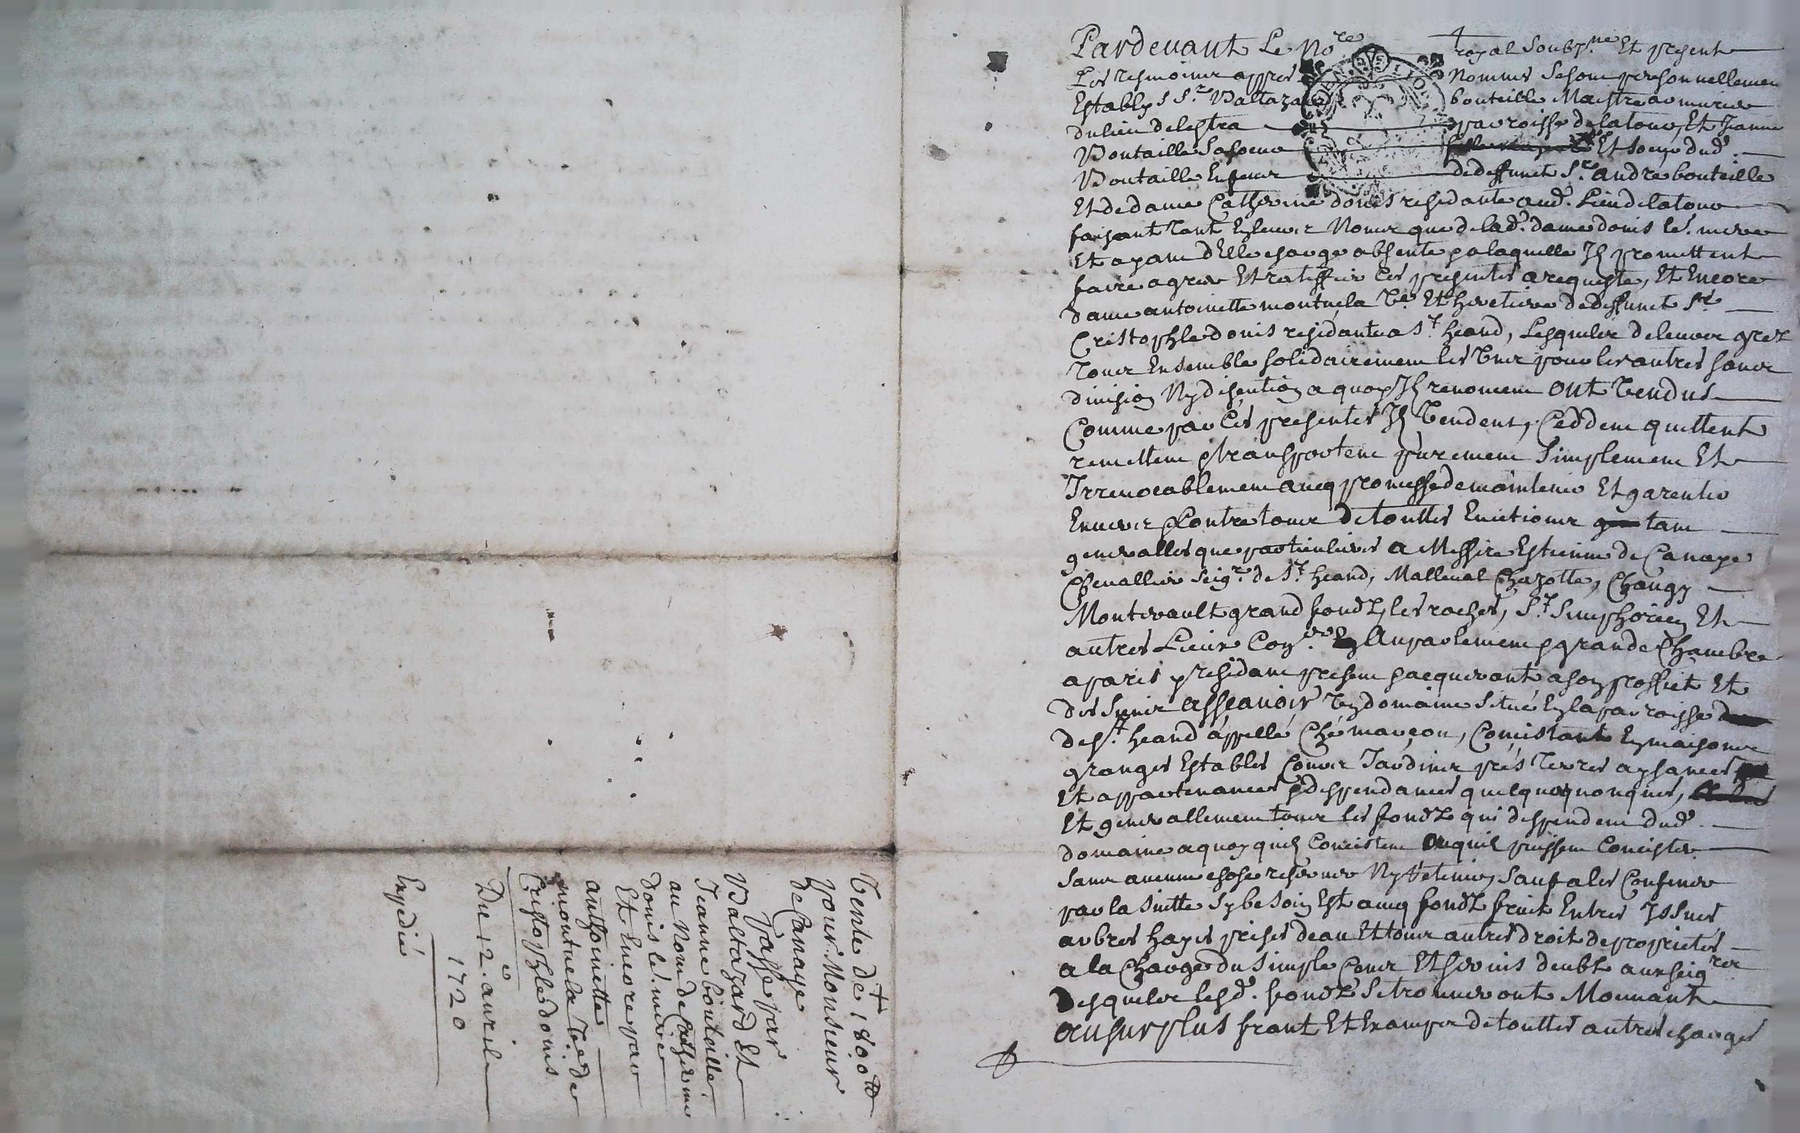 Pardevant Le No.re royal Soub.né Et present
Les tesmoins appres Nommes Se sont personnellement
Establys S.r Baltazard bouteille Maistre armurier
du lieu de lestra parroisse de latour, Et Jeanne
Boutaille Sa soeur Et soeur dud.
Boutaille Enfans de deffunct S.r andre bouteille
Et de dame Catherine donis residante aud. Lieu de latour
faisant tant En leur Noms que de lad. dame donis le. mere
Et ayant d'Elle charge absente p laquelle Ils promettent
faire agreer Et ratiffier Les presentes a requeste, Et Encore
dame antoinette montuela V.e Et heretiere de deffunct S.r
Cristophle donis residante a S.t heand, Lesquels de leurs grez
tous Ensemble solidairement les uns pour les autres sans
division Ny disention a quoy Ils renoncent ont vendus
Comme par Les presentes Ils vendent, Ceddent quittent
remettent & transportent purement Simplement Et
Irrevocablement avec promesse de maintenir Et garentir
Envers & Contre tous de touttes Evictions tant
generalles que particulieres a Messire Estienne de Canaye
Chevallier Seig.r de S.t heand, Malleval Chazotte, Changy
Montrevault grand fondz, les roches, S.t Simphorien Et
autres Lieux Con.er En Au parlement & grande Chambre
a paris y residant present & acquerant a son proffict Et
des Siens asscavoir un domaine Situé En la parroisse
de S.t heand appellé Chemançon, Concistant En maisons
granges Estables Cours Jardins prés terres aysances
Et appartenances & deppendances quelquonques,
Et generallement tous les fondz qui deppendent dud.
domaine a quoy quils Concistent ou quils puissent Concister
Sans aucune chose reserver Ny retenir, Sauf a les Confiner
par la Suitte Sy besoin Est avec fondz fruict Entrées Issues
arbres hayes prises deau Et tous autres droit de proprietes
a la Charge du Simple Cens Et servis deubt aux seig.rs
Desquels lesd. fondz Se trouveront Mouvant
au surplus franc Et Exampt de touttes autres charges
Vente de 1800 tt
pour Monsieur
de Canaye
Passé par
Baltazard Et
Jeanne bouteille
au Nom de Catherine
donis le. mere
Et Encore par
anthoinette
montuela V.e de
Cristophle donis
Du 12.e avril
1720
Expedié